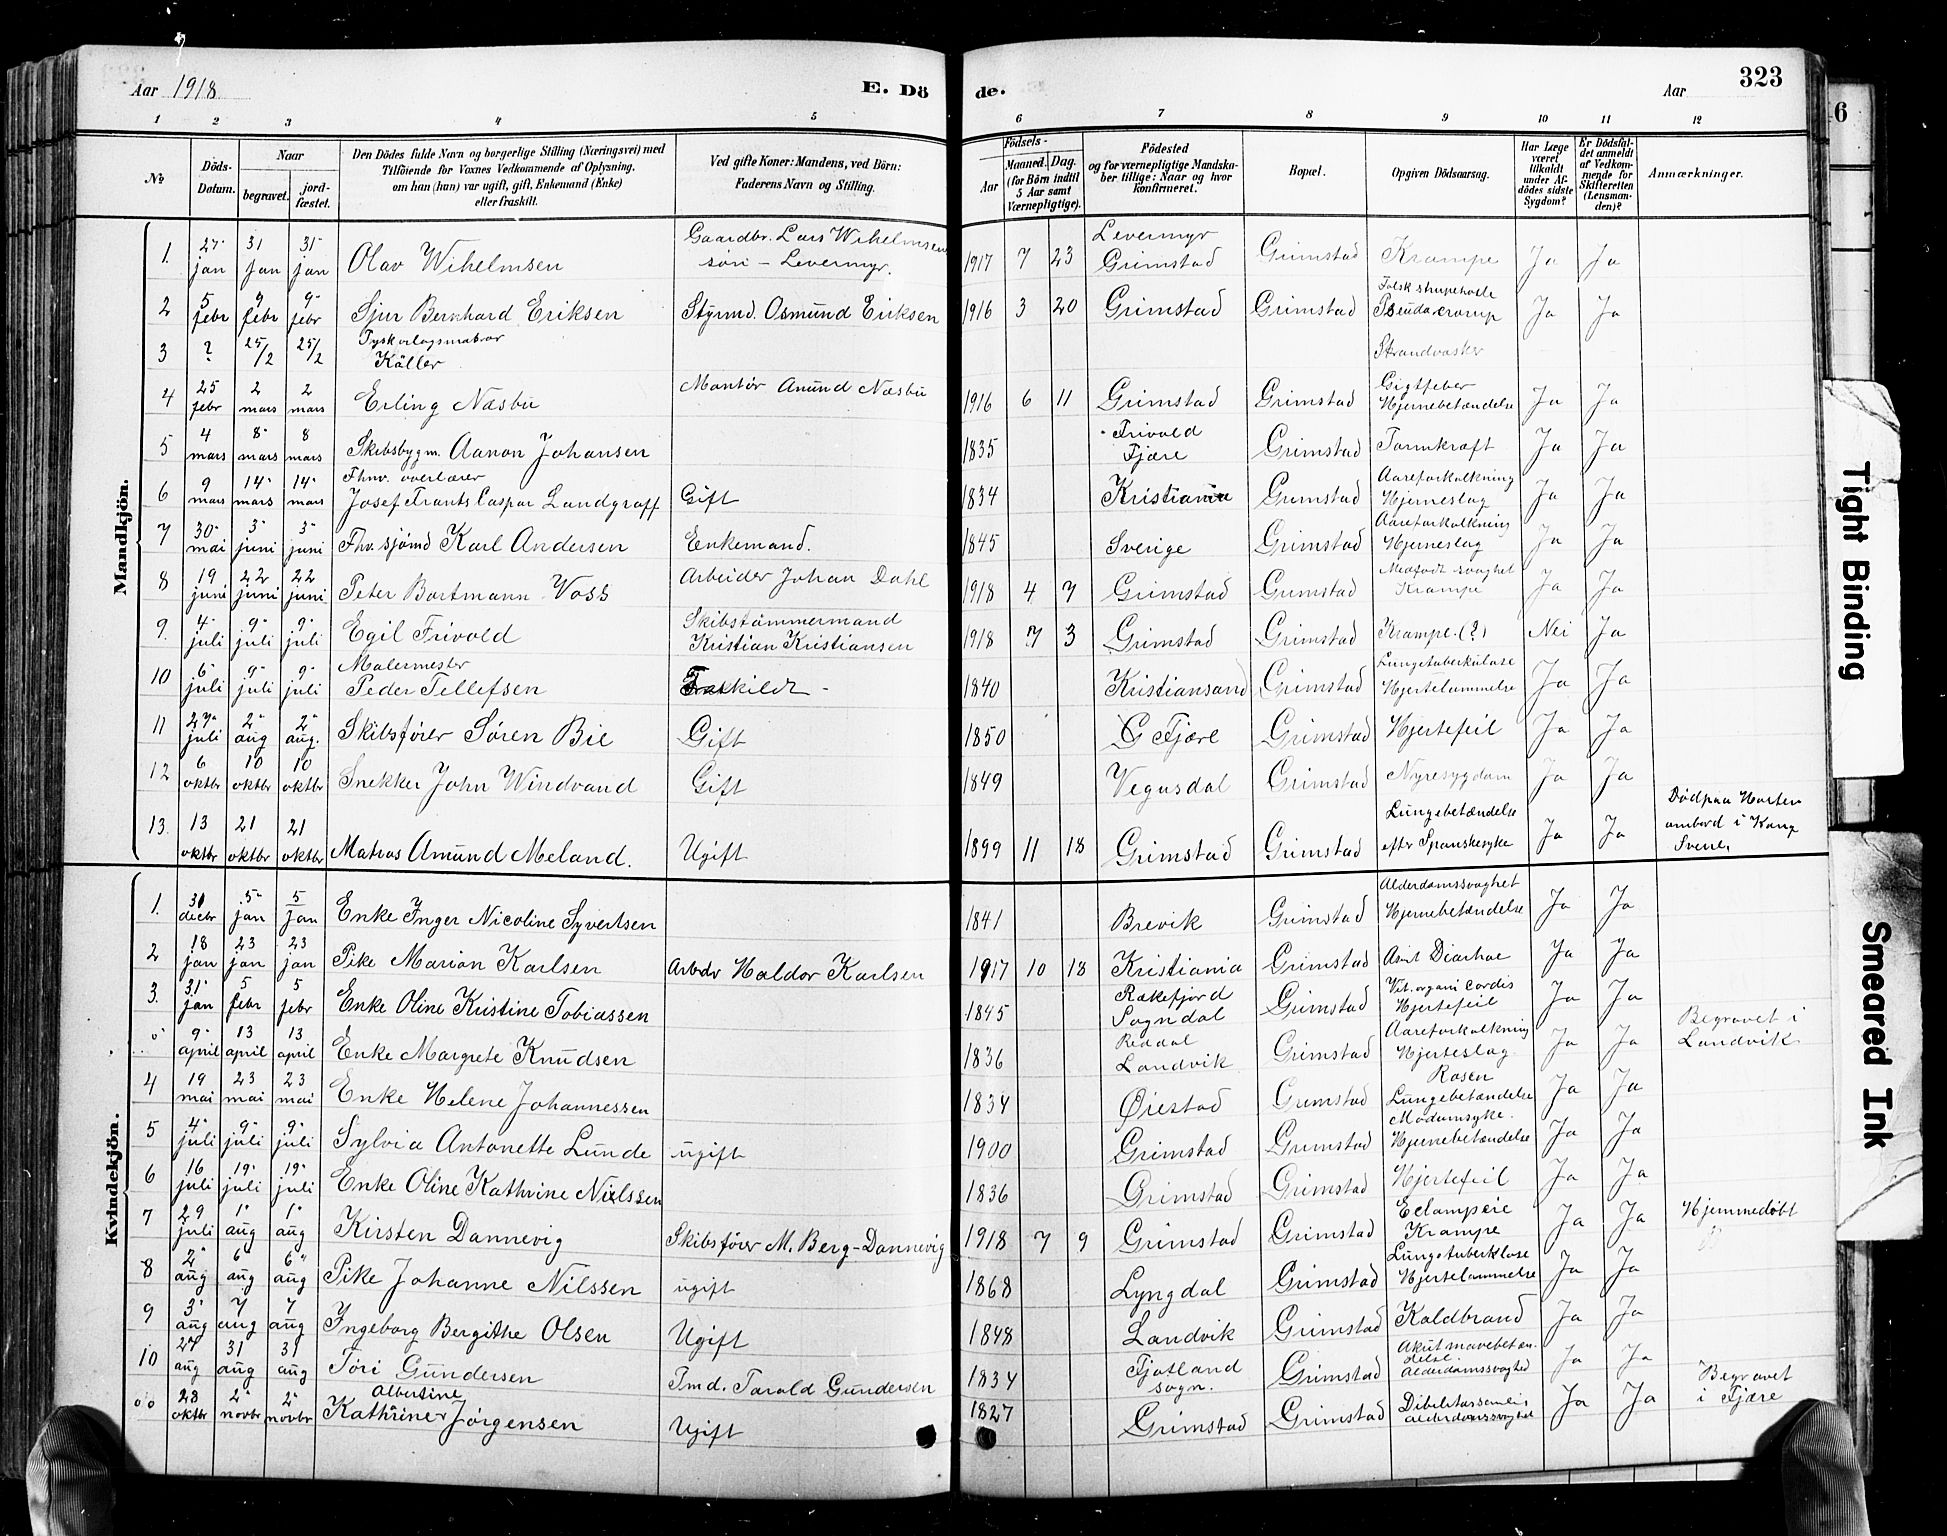 Aar 1918
E. Dö
de.
Aar
323
6
1 2 3 4 5 6 7 8 9 10 11 12
No
Döds-Datum.
Naar
begravet.
jord-fæstet.
Den Dödes fulde Navn og borgerlige Stilling (Næringsvei) med
Tilföiende for Voxnes Vedkommende af Oplysning,
om han (hun) var ugift, gift, Enkemand (Enke)
eller fraskilt.
Ved gifte Koner: Mandens, ved Börn:
Faderens Navn og Stilling.
Födsels-
Aar
Maaned. Dag.
(for Börn indtil
5 Aar samt
Værnepligtige).
Födested
og for værnepligtige Mandska-
ber tillige: Naar og hvor
konfirmeret.
Bopæl.
Opgiven Dödsaarsag.
Har Læge
været
tilkaldt
under Af-
dödes sidste
Sygdom?
Er Dödsfal-
det anmeldt
af Vedkom-
mende for
Skifteretten
(Lensman-
den)?
Anmærkninger.
Mandkjön.
1. 27 jan 31 jan 31 jan Olav Wihelmsen Gaardbr. Lars Wihelmsen søn - Levermyr. 1917 7 23 Levermyr Grimstad Grimstad Krampe Ja Ja
2 5 febr 9 febr 9 febr Sjur Bernhard Eriksen Styrmd. Osmund Eriksen 1916 3 20 Grimstad Grimstad Falsk strupehoste Pseudocroup Ja Ja
3 ? 25/2 25/2 Tysk Käller Strandvasker
4 25 febr 2 mars 2 mars Erling Næsbu Montør Anund Næsbu 1916 6 11 Grimstad Grimstad Gigtfeber Hjernebetændelse Ja Ja
5 4 mars 8 mars 8 mars Skibsbygm. Aanon Johansen 1835 Frivold Fjære Grimstad Tarmkræft Ja Ja
6 9 mars 14 mars 14 mars Fhnv. overlærer Josef Frants Caspar Landgraff Gift 1834 Kristiania Grimstad Aareforkalkning Hjerneslag Ja Ja
7 30 mai 3 juni 3 juni Fhv. sjømd Karl Andersen Enkemand. 1845 Sverige Grimstad Aareforkalkning Hjerneslag Ja Ja
8 19 juni 22 juni 22 juni Peter Bortmann Voss Arbeider Johan Dahl 1918 4 7 Grimstad Grimstad Medfødt svaghet Krampe Ja Ja
9. 4 juli 9 juli 9 juli Egil Frivold Skibstømmermand Kristian Kristiansen 1918 7 3 Grimstad Grimstad Krampe. (?) Nei Ja
10 6 juli 9 juli 9 juli Malermester Peder Tellefsen Fraskildt - 1840 Kristiansand Grimstad Lungetuberkulose Hjertelammelse Ja Ja
11 27 juli 2 aug 2 aug. Skibsfører Søren Bie Gift 1850 G Fjære Grimstad Hjertefeil Ja Ja
12 6 oktbr 10 oktbr 10 oktbr Snekker John Windvand Gift 1849 Vegusdal Grimstad Nyresygdom Ja Ja
13. 13 oktbr 21 oktbr 21 oktbr Matros Amund Meland. Ugift 1899 11 18 Grimstad Grimstad Lungebetændelse efter Spanskesyke Ja Ja Død paa Horten ombord i Kong Sverre
Kvindekjön.
1. 31 decbr 5 jan 5 jan Enke Inger Nicoline Syvertsen 1841 Brevik Grimstad Alderdomssvaghet Hjernebetændelse Ja Ja
2 18 jan 23 jan 23 jan Pike Marion Karlsen Arbeder Haldor Karlsen 1917 10 18 Kristiania Grimstad Diarhoe Ja Ja
3. 31 jan 5 febr 5 febr Enke Oline Kristine Tobiassen 1845 Rækefjord Sogndal Grimstad Vit. organi cordis Hjertefeil Ja Ja
o 9 april 13 april 13 april Enke Margrete Knudsen 1836 Reddal Landvik Grimstad Aareforkalkning Hjerteslag. Ja Ja Begravet i Landvik
4 19 mai 23 mai 23 mai Enke Helene Johannessen 1834 Øiestad Grimstad Rosen Lungebetændelse Ja Ja
5 4 juli 9 juli 9 juli Sylvia Antonette Lunde ugift 1900 Grimstad Grimstad Hjernebetændelse Ja Ja
6 16 juli 19 juli 19 juli Enke Oline Kathrine Nielssen 1836 Grimstad Grimstad Hjertefeil Ja Ja
7 29 juli 1 aug 1 aug Kirsten Dannevig Skibsfører M. Berg-Dannevig 1918 7 9 Grimstad Grimstad Eclampsie Krampe Ja Ja Hjemmedøbt
8 2 aug 6 aug 6 aug Pike Johanne Nilssen ugift 1868 Lyngdal Grimstad Lungetuberklose Hjertelammelse Ja Ja
9 3 aug 7 aug 7 aug Ingeborg Bergithe Olsen Ugift 1848 Landvik Grimstad Koldbrand Ja Ja
10 27 aug 31 aug 31 aug Tøri Gundersen Tmd. Tarald Gundersen 1834 Fjotland sogn. Grimstad Akut mavebetændelse. Alderdomssvaghed Ja Ja
oo 28 oktbr 2 novbr 2 novbr Kathrine Albertine Jørgensen Ugift 1827 Grimstad Grimstad alderdomssvaghet Ja Ja Begravet i Fjære
Tight Binding
Smeared Ink